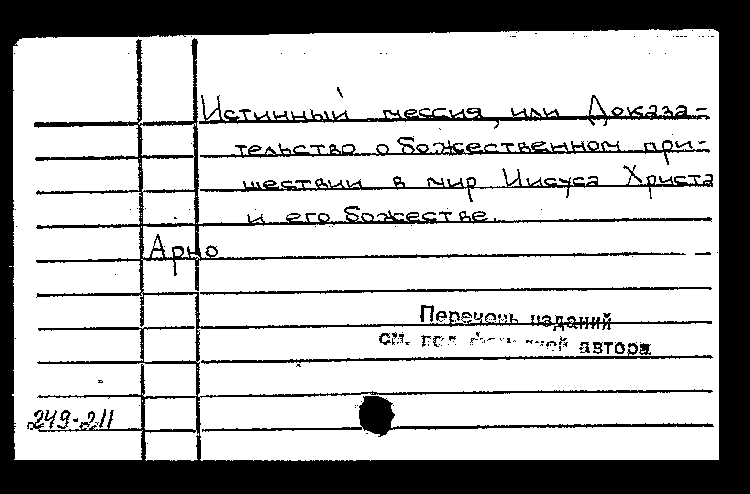 Истинный мессия, или Доказа=
тельство о божественном при=
шествии в мир Иисуса Христа
и его божестве.
Арно
Перечень изданий
см. под фамилией автора
249-211